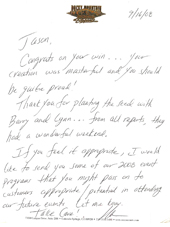 9/16/02
Jason,
Congrats on your win... your
creation was masterful and you should
be quite proud!
Thank you for planting the seeds with
Barry and Lynn... from all reports, they
had a wonderful weekend.
If you feel it appropriate, I would
like to send you some of our 2003 event
programs that you might pass on to
customers appropriate/potential in attending
our future events. Let me know.
Take Care!